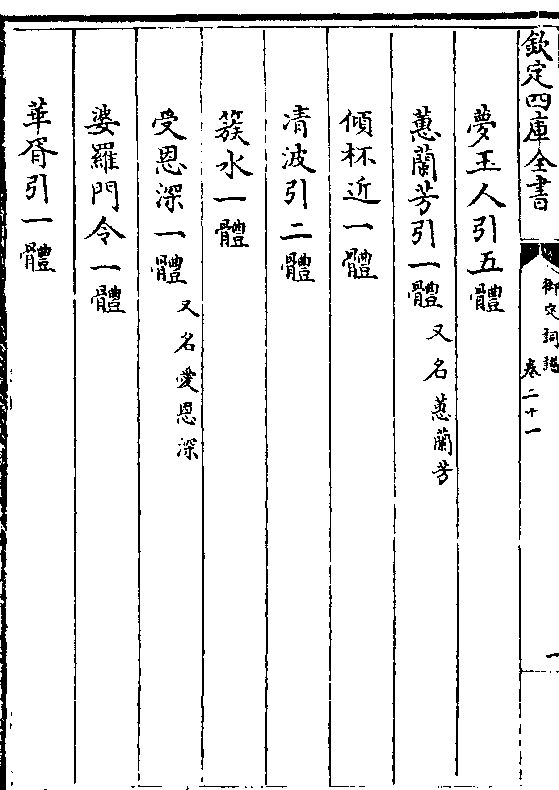 欽定四庫全書
御定詞譜
卷二十一
一
夢玉人引五體
蕙蘭芳引一體又名蕙蘭芳
傾杯近一體
清波引二體
簇水一體
受恩深一體又名愛恩深
婆羅門令一體
華胥引一體